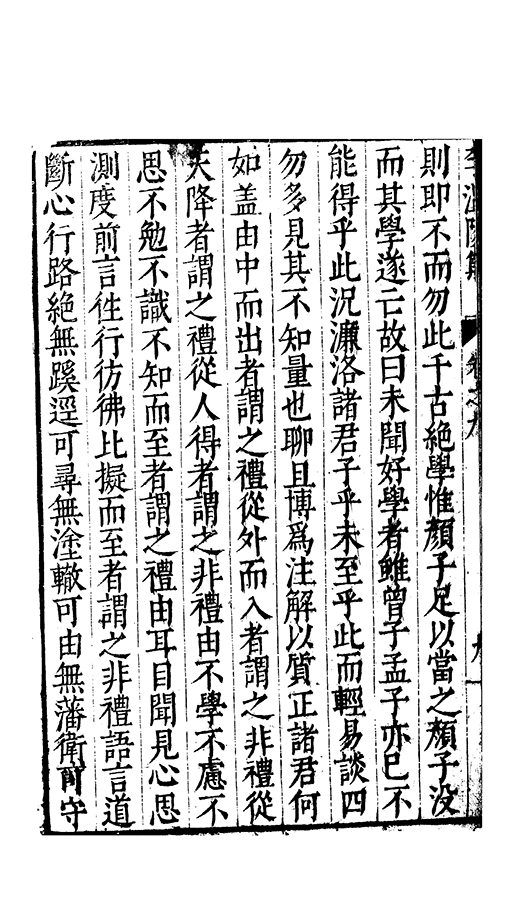 李溫陵集
卷之九
九
則即不而勿此千古絶學惟顏子足以當之顏子没
而其學遂亡故曰未聞好學者雖曾子孟子亦已不
能得乎此況濂洛諸君子乎未至乎此而輕易談四
勿多見其不知量也聊且博爲注解以質正諸君何
如盖由中而出者謂之禮從外而入者謂之非禮從
天降者謂之禮從人得者謂之非禮由不學不慮不
思不勉不識不知而至者謂之禮由耳目聞見心思
測度前言徃行彷彿比擬而至者謂之非禮語言道
斷心行路絶無蹊逕可尋無塗轍可由無藩衛可守